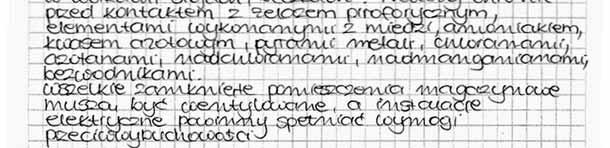 przed kontaktem z żelazem piroforycznym,
elementami wykonanymi z miedzi, amoniakiem,
kwasem azotowym, pyłami metali, chloranami,
azotanami, nadchloranami, nadmanganianami,
bezwodnikami.
Wszelkie zamknięte pomieszczenia magazynowe
muszą być wentylowane, a instalacje
elektryczne powinny spełniać wymogi
przeciwwybuchowości